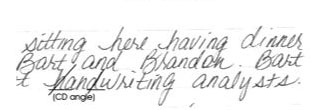 sitting here having dinner
Bart and Brandon. Bart
t handwriting analysts.
(CD angle)